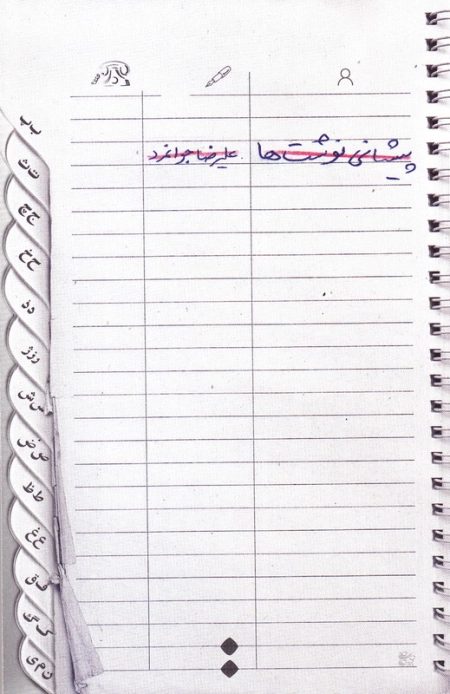 پیشانی نوشت‌ها علیرضا جوانمرد
ب پ
ت ث
ج چ
ح خ
د ذ
ر ز ژ
س ش
ص ض
ط ظ
ع غ
ف ق
ک گ